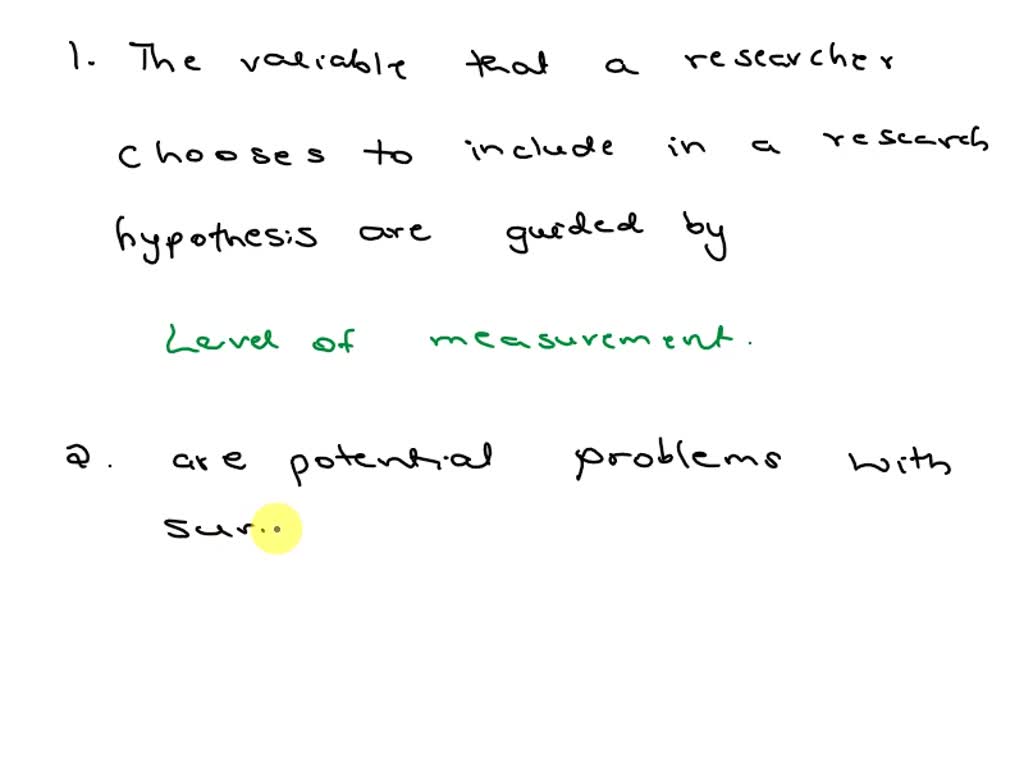 1. The variable that a researcher
chooses to include in a research
hypothesis are guided by
Level of measurement.
2. are potential problems with
sur